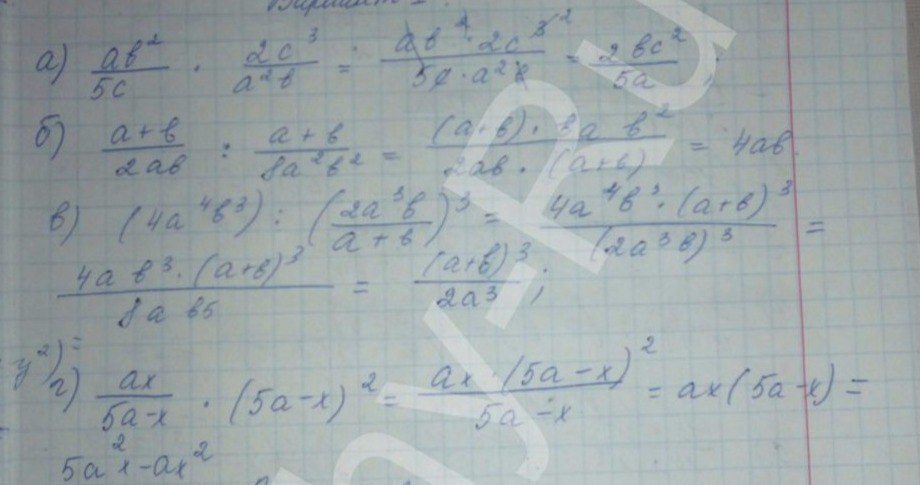 Вариант
а) ab²/5c · 2c³/a²b = ab² · 2c³/5c · a²b = 2bc²/5a ;
б) a+b/2ab : a+b/8a²b² = (a+b) · 8a b²/2ab · (a+b) = 4ab
в) (4a⁴b³) : (2a³b/a+b)³ = 4a⁴b³ · (a+b)³/(2a³b)³ =
4a b³ · (a+b)³/8a b5 = (a+b)³/2a³ ;
y²) =
г) ax/5a-x · (5a-x)² = ax · (5a-x)²/5a-x = ax(5a-x) =
5a²x-ax²